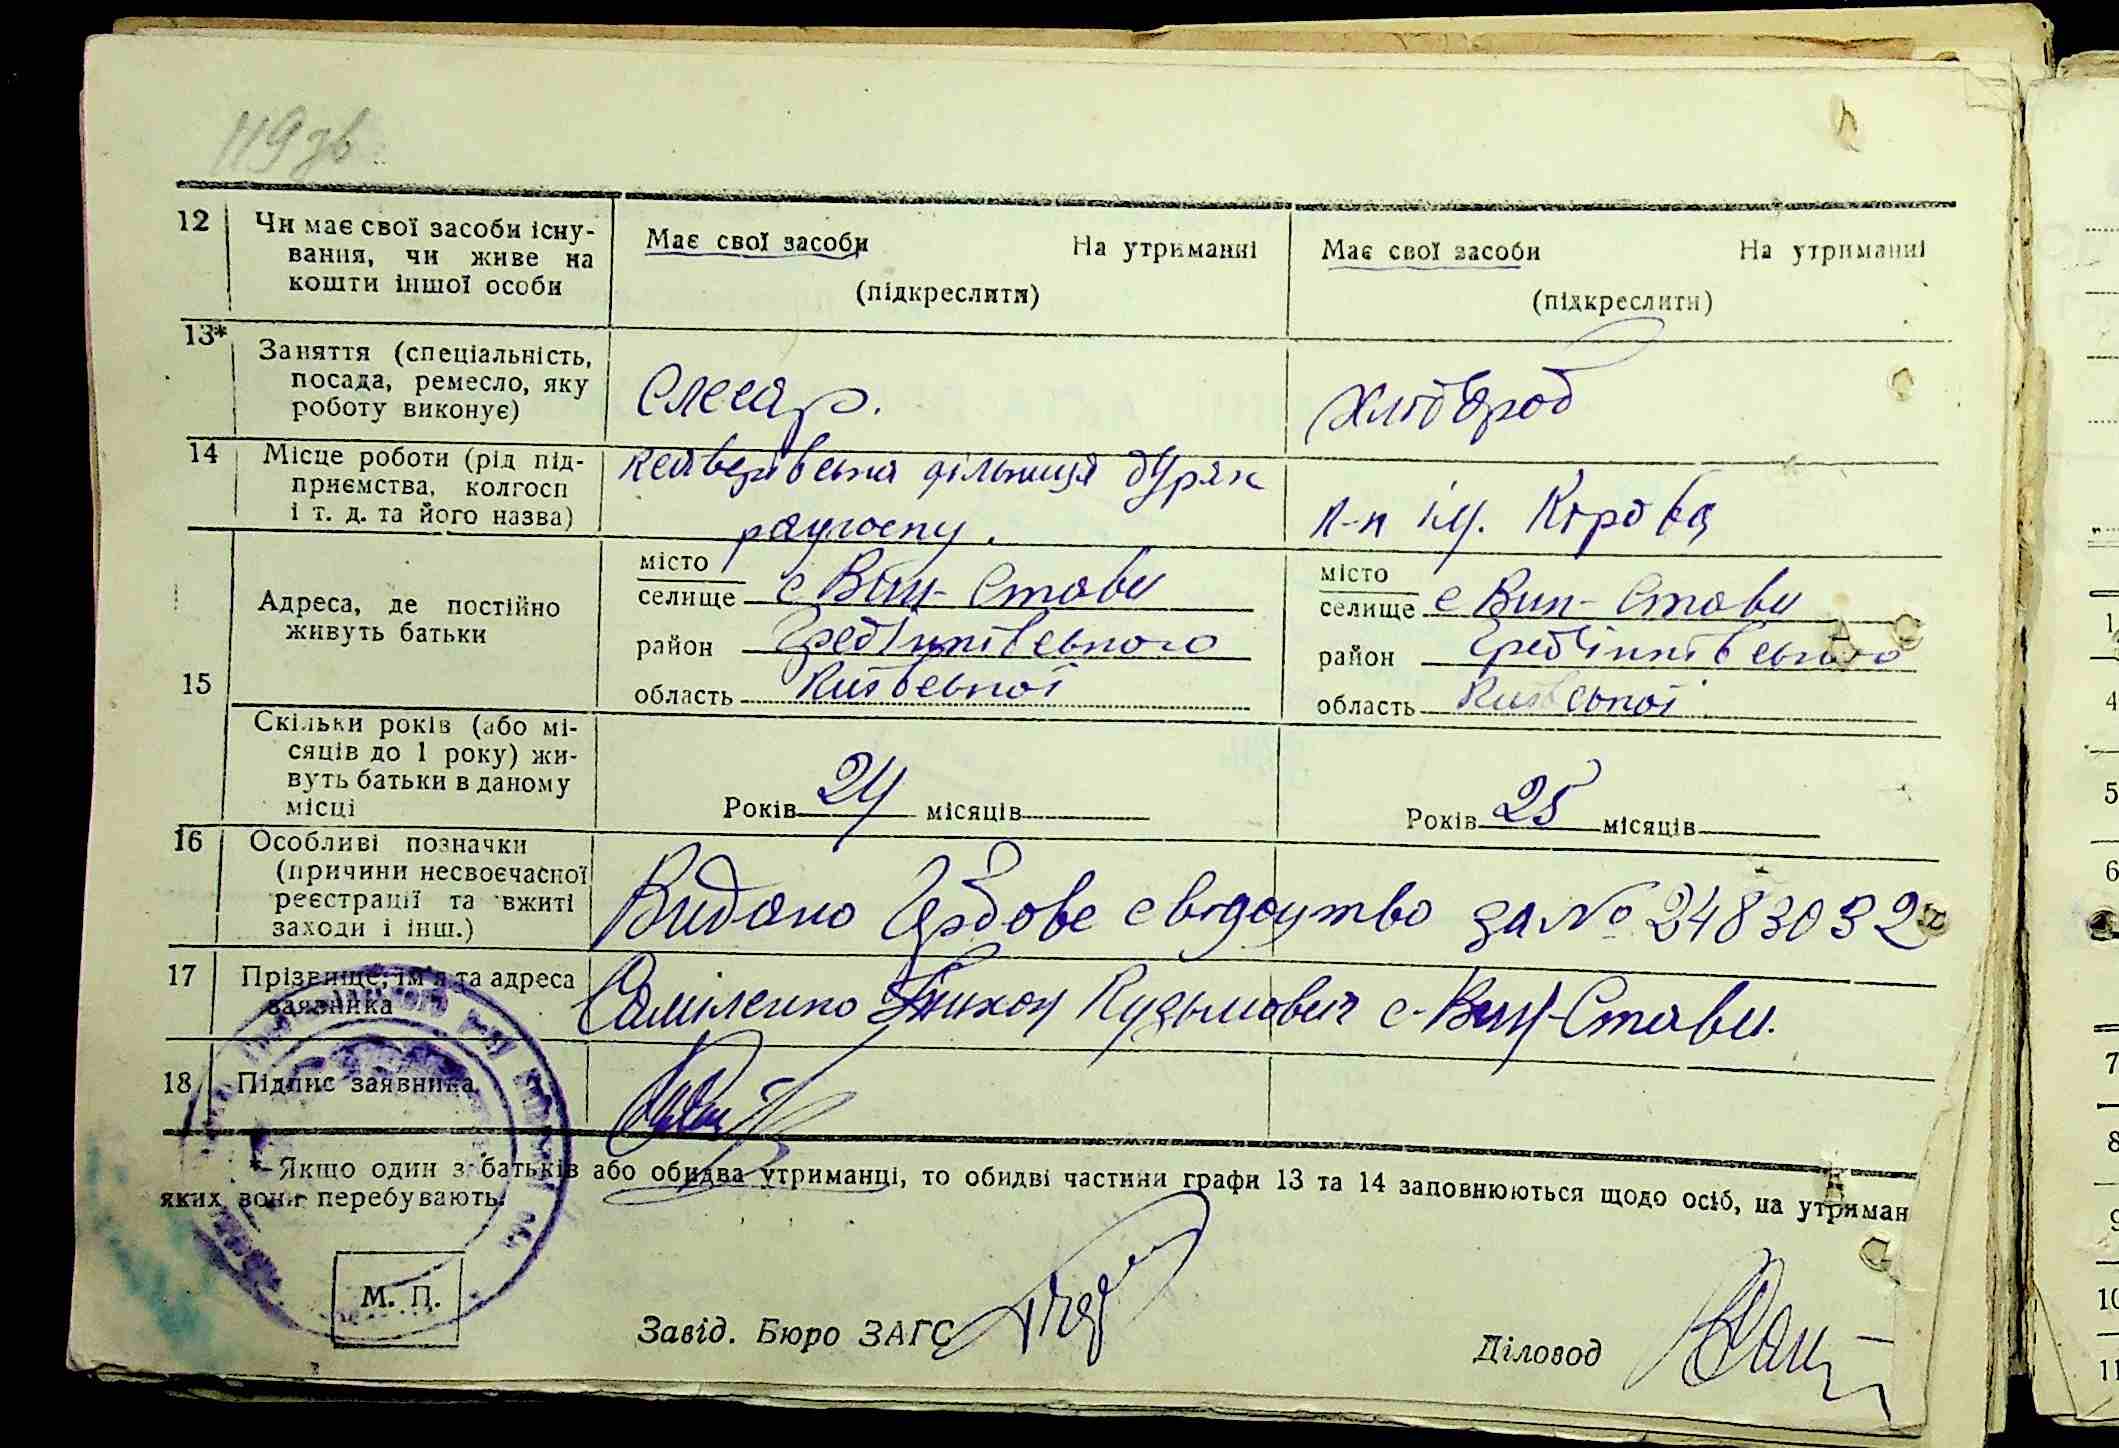 119 зв
12 Чи має свої засоби існу-
вання, чи живе на
кошти іншої особи
Має свої засоби На утриманні
(підкреслити)
Має свої засоби На утриманні
(підкреслити)
13* Заняття (спеціальність,
посада, ремесло, яку
роботу виконує)
Слесар.
Хлібороб
14 Місце роботи (рід під-
приємства, колгосп
і т. д. та його назва)
дільниця буряк
радгоспу.
к-п ім. Кірова
15 Адреса, де постійно
живуть батьки
місто
селище с Вин-Стави
район Гребінківського
область Київської
місто
селище с Вин-Стави
район Гребінківського
область Київської
Скільки років (або мі-
сяців до 1 року) жи-
вуть батьки в даному
місці
Років 24 місяців
Років 25 місяців
16 Особливі позначки
(причини несвоєчасної
реєстрації та вжиті
заходи і інш.)
Видано Гербове свідоцтво за № 2483032
17 Прізвище, ім'я та адреса
заявника
Самійленко Тихон Кузьмович с-Вин-Стави.
18 Підпис заявника
*-Якщо один з батьків або обидва утриманці, то обидві частини графи 13 та 14 заповнюються щодо осіб, на утриман
яких вони перебувають.
М. П.
Завід. Бюро ЗАГС
Діловод
1
4
5
6
7
8
9
10
11